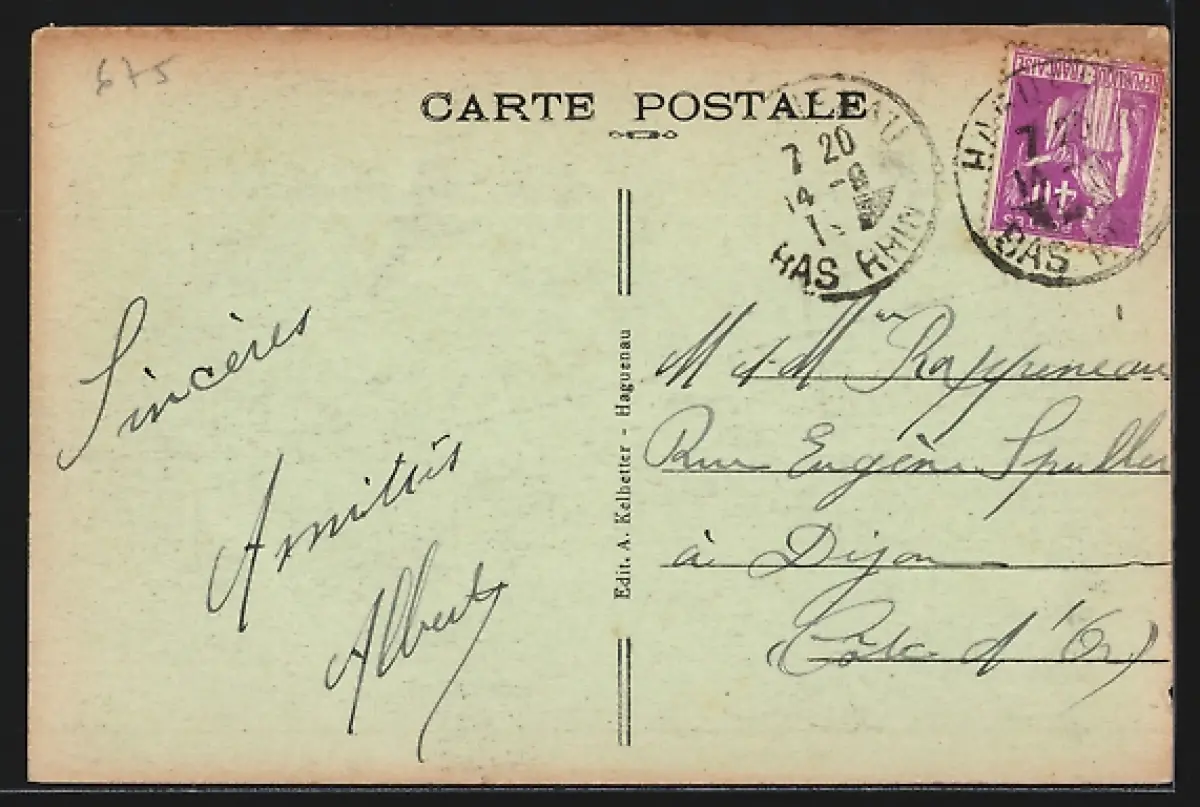 675
CARTE POSTALE
HAGUENAU
7 20
14
BAS RHIN
HAGUENAU
7 20
14
BAS RHIN
REPUBLIQUE FRANÇAISE
Sincères
Amitiés
Albert
Edit. A. Kelbetter - Haguenau
M et Mme Rappeneau
Rue Eugène Spuller
à Dijon
(Côte d'Or)